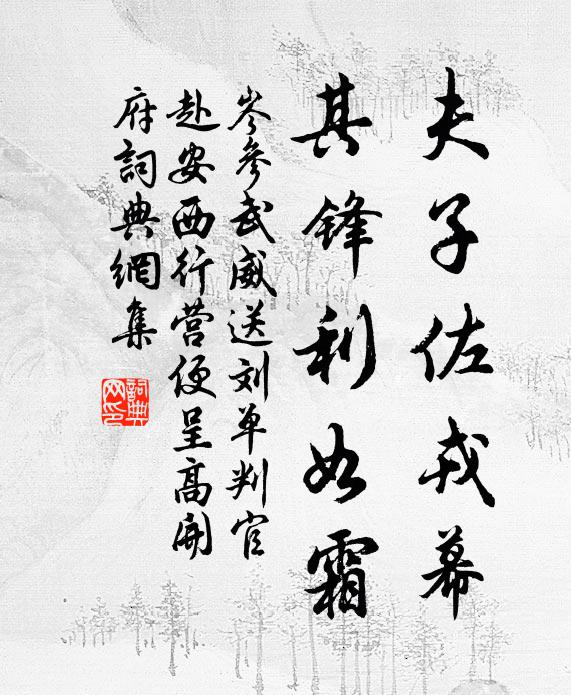 夫子佐戎幕
其锋利如霜
岑参武威送刘单判官
赴安西行营便呈高开
府词典网集
词典网印